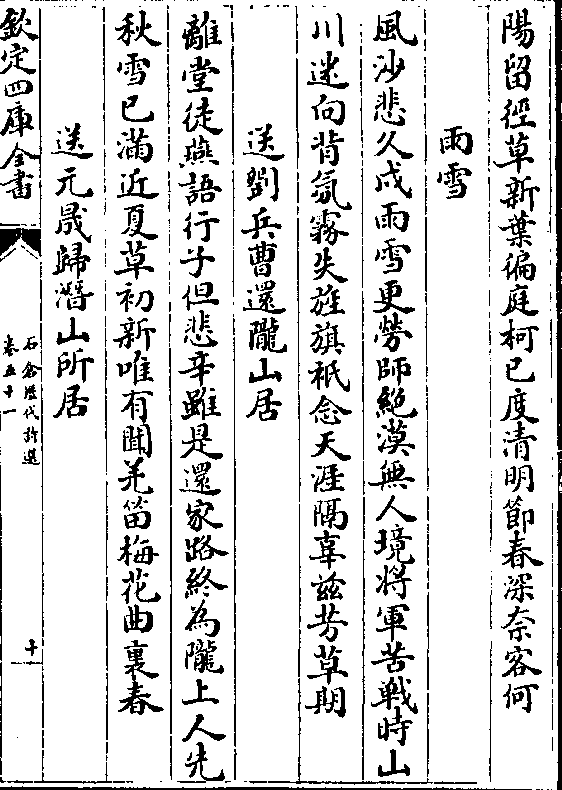 陽留徑草新葉徧庭柯已度清明節春深奈客何
雨雪
風沙悲久戍雨雪更勞師絶漠無人境將軍苦戰時山
川迷向背氛霧失旌旗祇念天涯隔辜兹芳草期
送劉兵曹還隴山居
離堂徒燕語行子但悲辛雖是還家路終為隴上人先
秋雪已滿近夏草初新唯有聞羌笛梅花曲裏春
送元晟歸潛山所居
欽定四庫全書
石倉歴代詩選
卷五十一
十